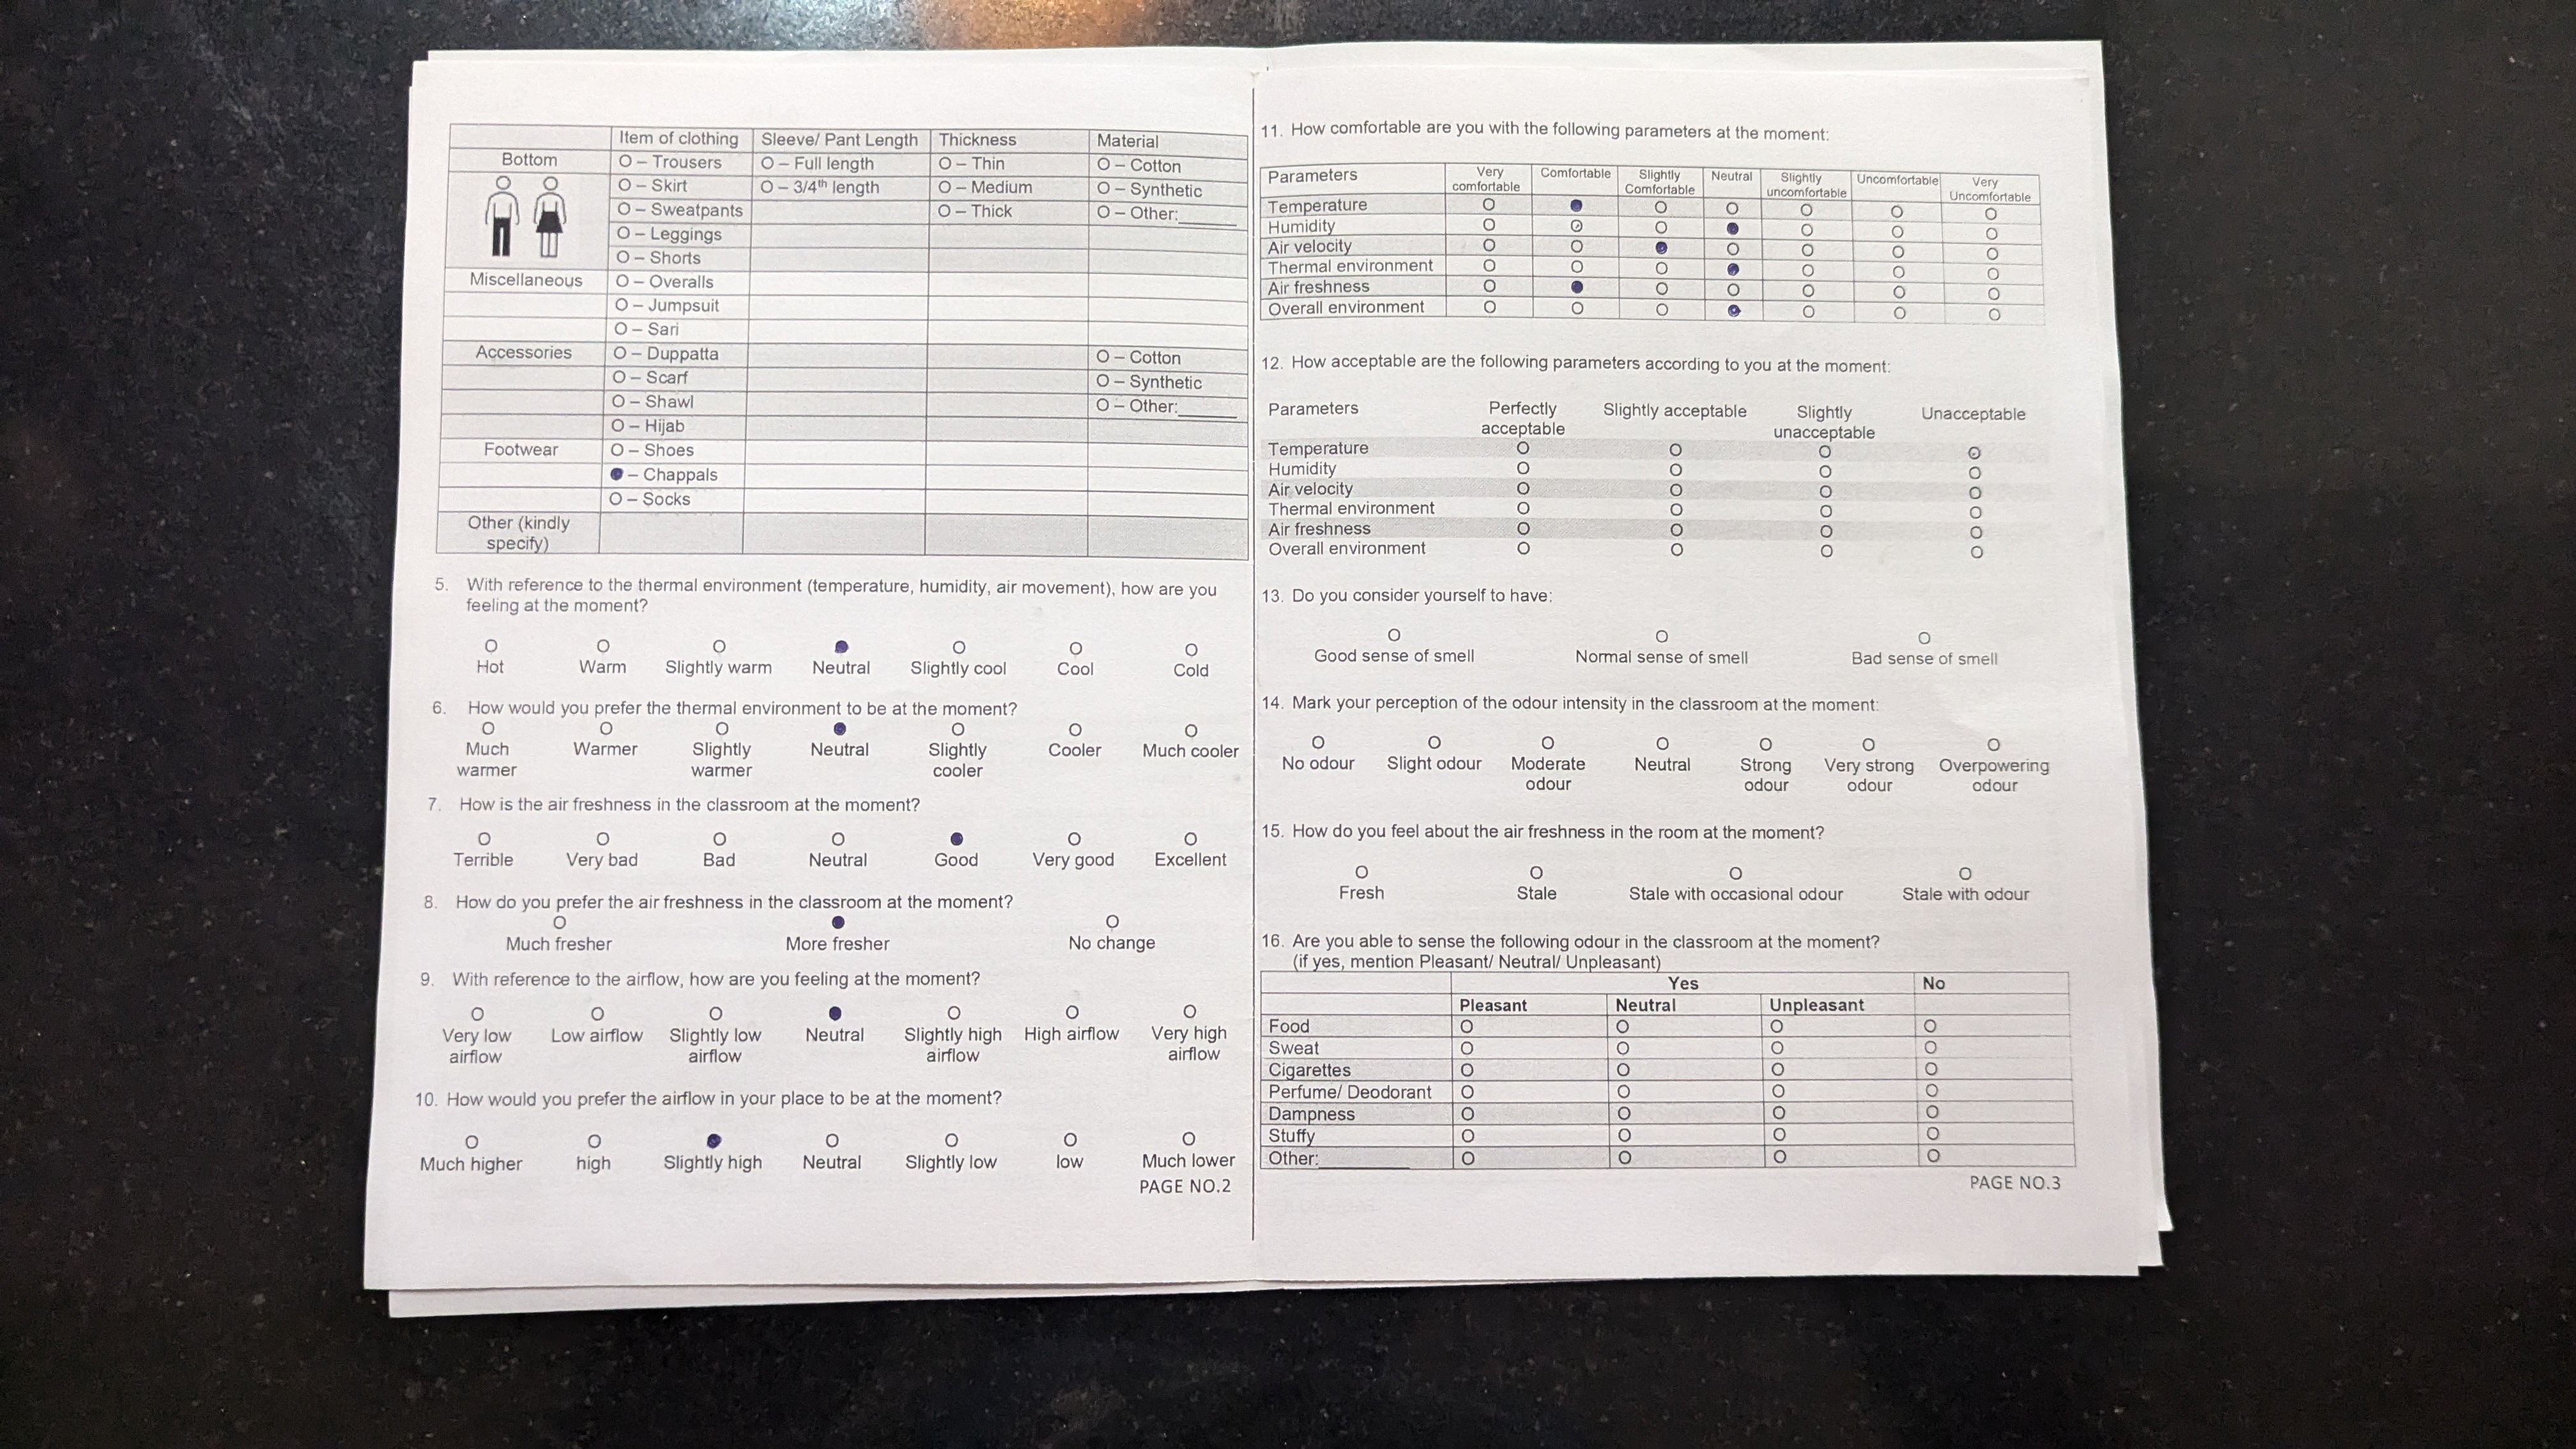 Item of clothing Sleeve/ Pant Length Thickness Material
Bottom O – Trousers O – Full length O – Thin O – Cotton
O – Skirt O – 3/4th length O – Medium O – Synthetic
O – Sweatpants O – Thick O – Other:______
O – Leggings
O – Shorts
Miscellaneous O – Overalls
O – Jumpsuit
O – Sari
Accessories O – Duppatta O – Cotton
O – Scarf O – Synthetic
O – Shawl O – Other:______
O – Hijab
Footwear O – Shoes
● – Chappals
O – Socks
Other (kindly
specify)
5. With reference to the thermal environment (temperature, humidity, air movement), how are you
feeling at the moment?
O O O ● O O O
Hot Warm Slightly warm Neutral Slightly cool Cool Cold
6. How would you prefer the thermal environment to be at the moment?
O O O ● O O O
Much Warmer Slightly Neutral Slightly Cooler Much cooler
warmer warmer cooler
7. How is the air freshness in the classroom at the moment?
O O O O ● O O
Terrible Very bad Bad Neutral Good Very good Excellent
8. How do you prefer the air freshness in the classroom at the moment?
O ● O
Much fresher More fresher No change
9. With reference to the airflow, how are you feeling at the moment?
O O O ● O O O
Very low Low airflow Slightly low Neutral Slightly high High airflow Very high
airflow airflow airflow airflow
10. How would you prefer the airflow in your place to be at the moment?
O O ● O O O O
Much higher high Slightly high Neutral Slightly low low Much lower
PAGE NO.2
11. How comfortable are you with the following parameters at the moment:
Parameters Very Comfortable Slightly Neutral Slightly Uncomfortable Very
comfortable Comfortable uncomfortable Uncomfortable
Temperature O ● O O O O O
Humidity O O O ● O O O
Air velocity O O ● O O O O
Thermal environment O O O ● O O O
Air freshness O ● O O O O O
Overall environment O O O ● O O O
12. How acceptable are the following parameters according to you at the moment:
Parameters Perfectly Slightly acceptable Slightly Unacceptable
acceptable unacceptable
Temperature O O O O
Humidity O O O O
Air velocity O O O O
Thermal environment O O O O
Air freshness O O O O
Overall environment O O O O
13. Do you consider yourself to have:
O O O
Good sense of smell Normal sense of smell Bad sense of smell
14. Mark your perception of the odour intensity in the classroom at the moment:
O O O O O O O
No odour Slight odour Moderate Neutral Strong Very strong Overpowering
odour odour odour odour
15. How do you feel about the air freshness in the room at the moment?
O O O O
Fresh Stale Stale with occasional odour Stale with odour
16. Are you able to sense the following odour in the classroom at the moment?
(if yes, mention Pleasant/ Neutral/ Unpleasant)
Yes No
Pleasant Neutral Unpleasant
Food O O O O
Sweat O O O O
Cigarettes O O O O
Perfume/ Deodorant O O O O
Dampness O O O O
Stuffy O O O O
Other:_________ O O O O
PAGE NO.3